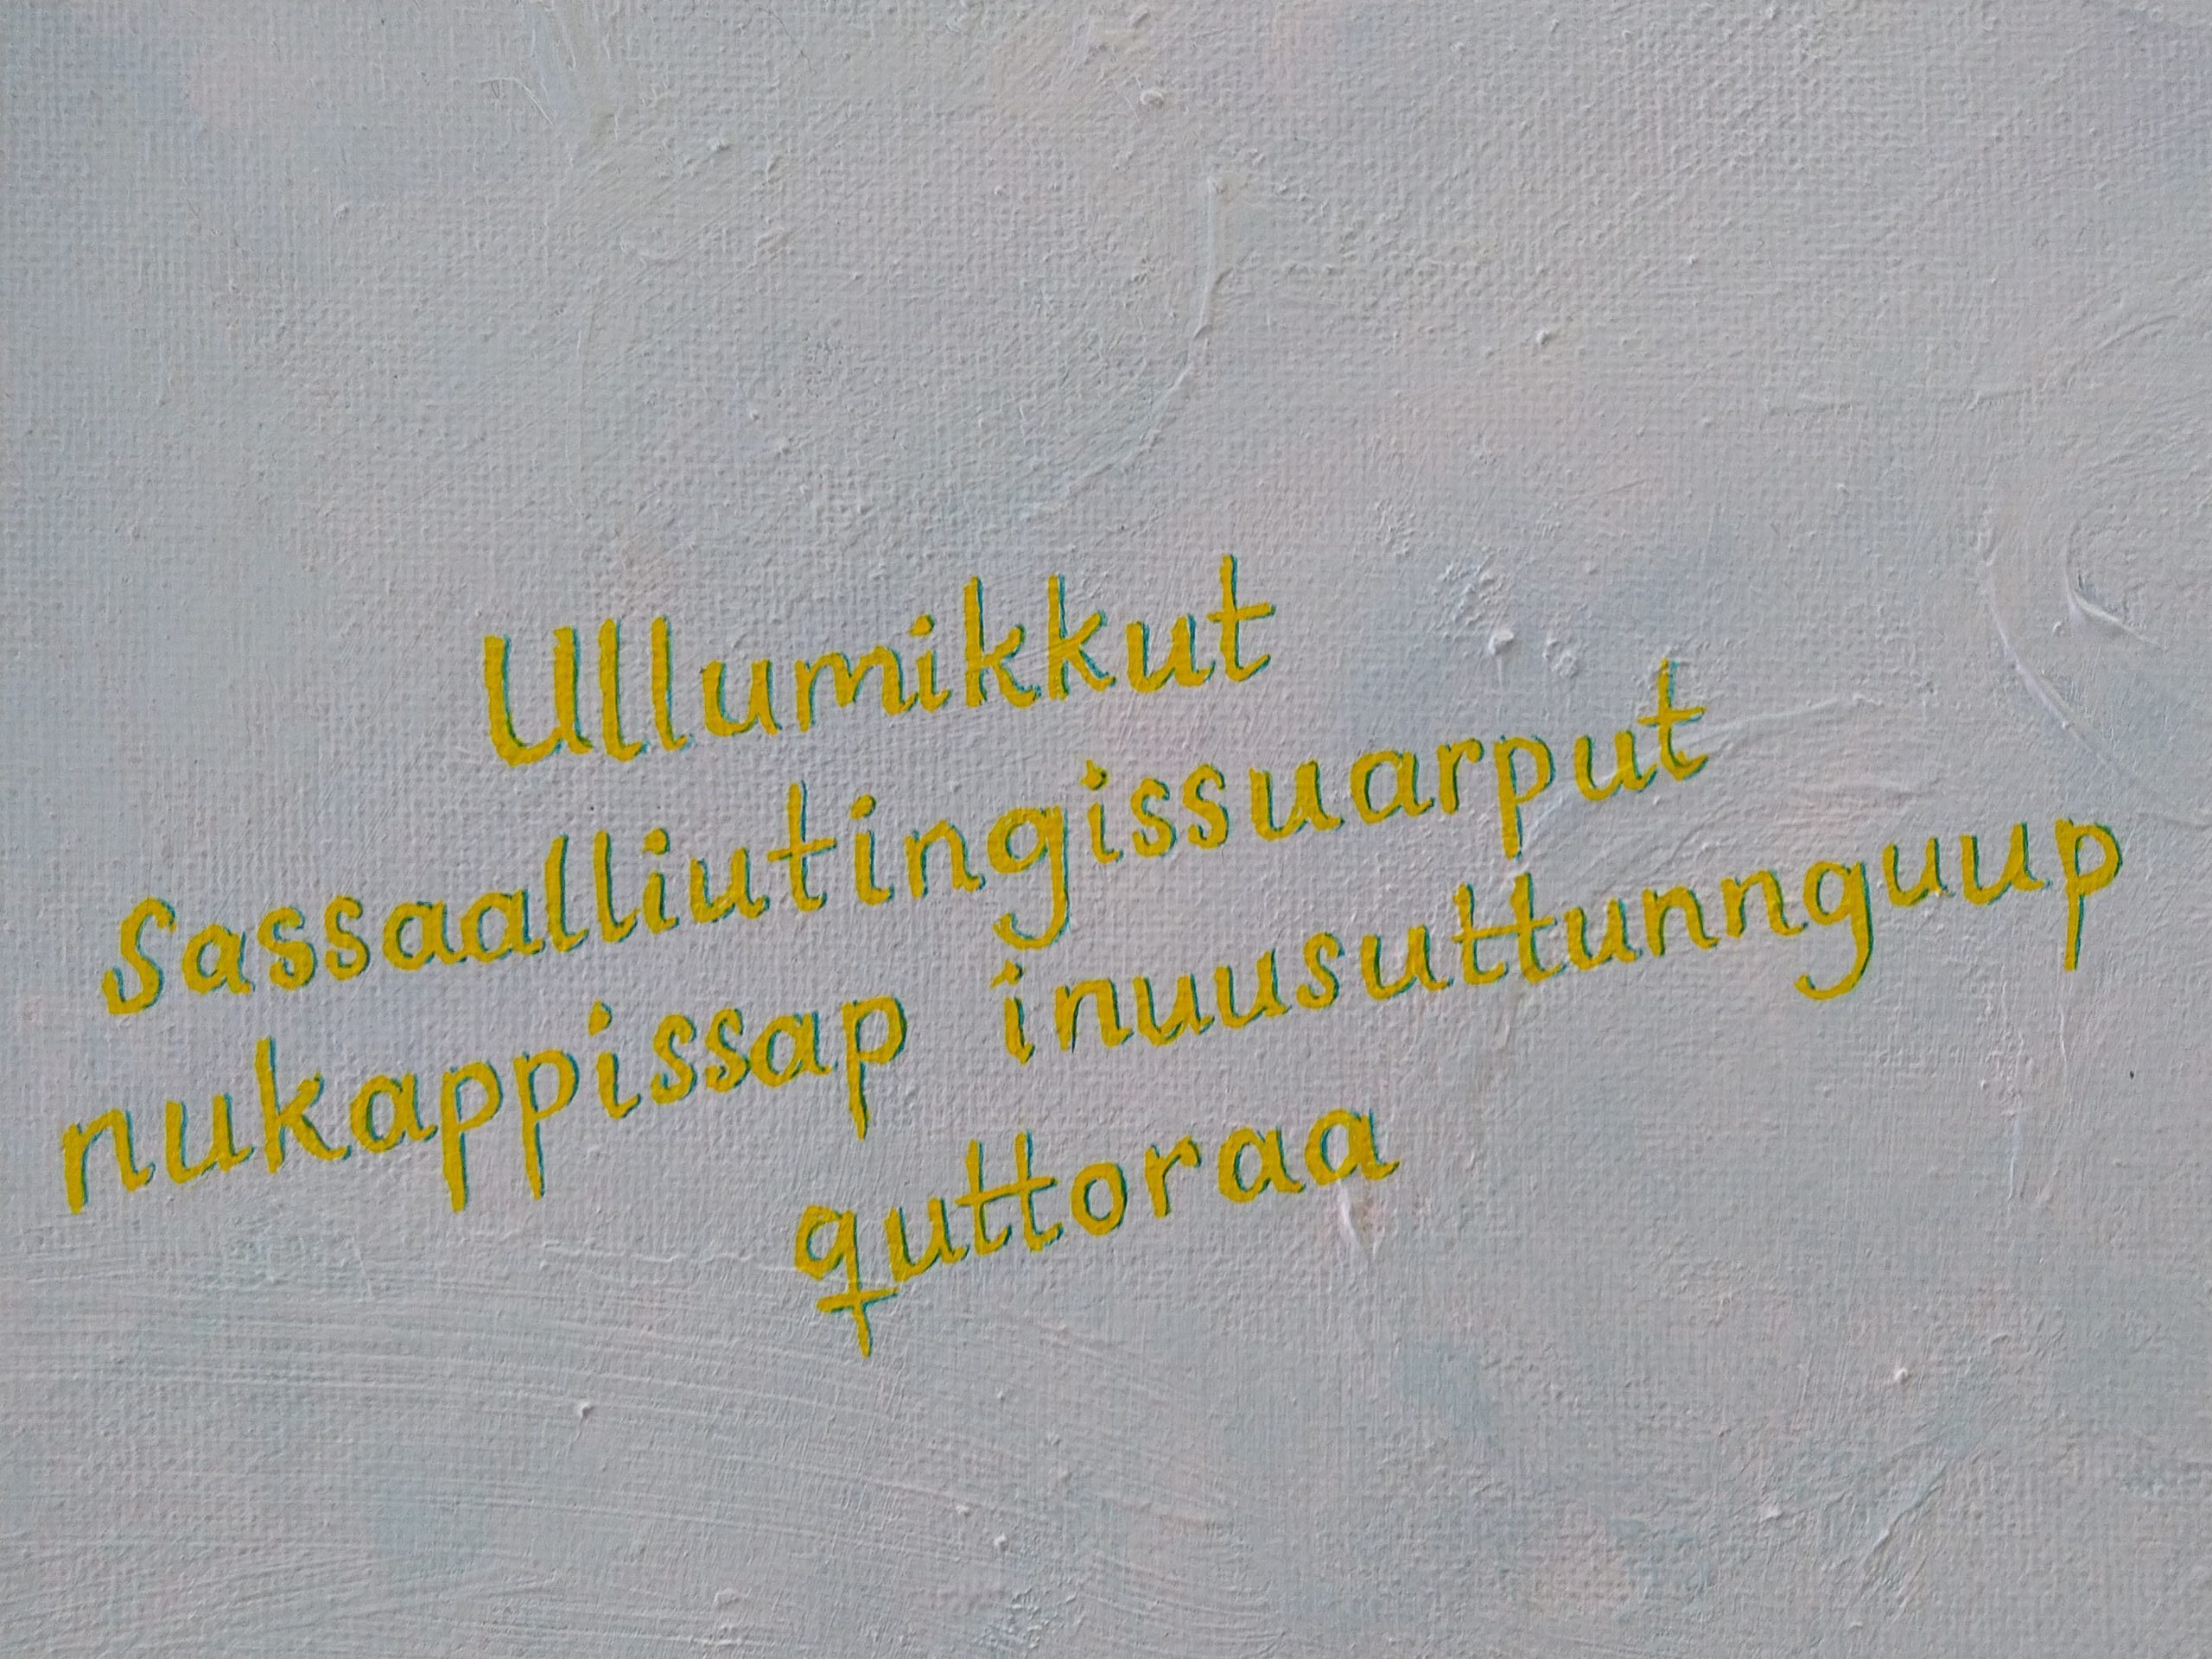 Ullumikkut
sassaalliutingissuarput
nukappissap inuusuttunnguup
quttoraa